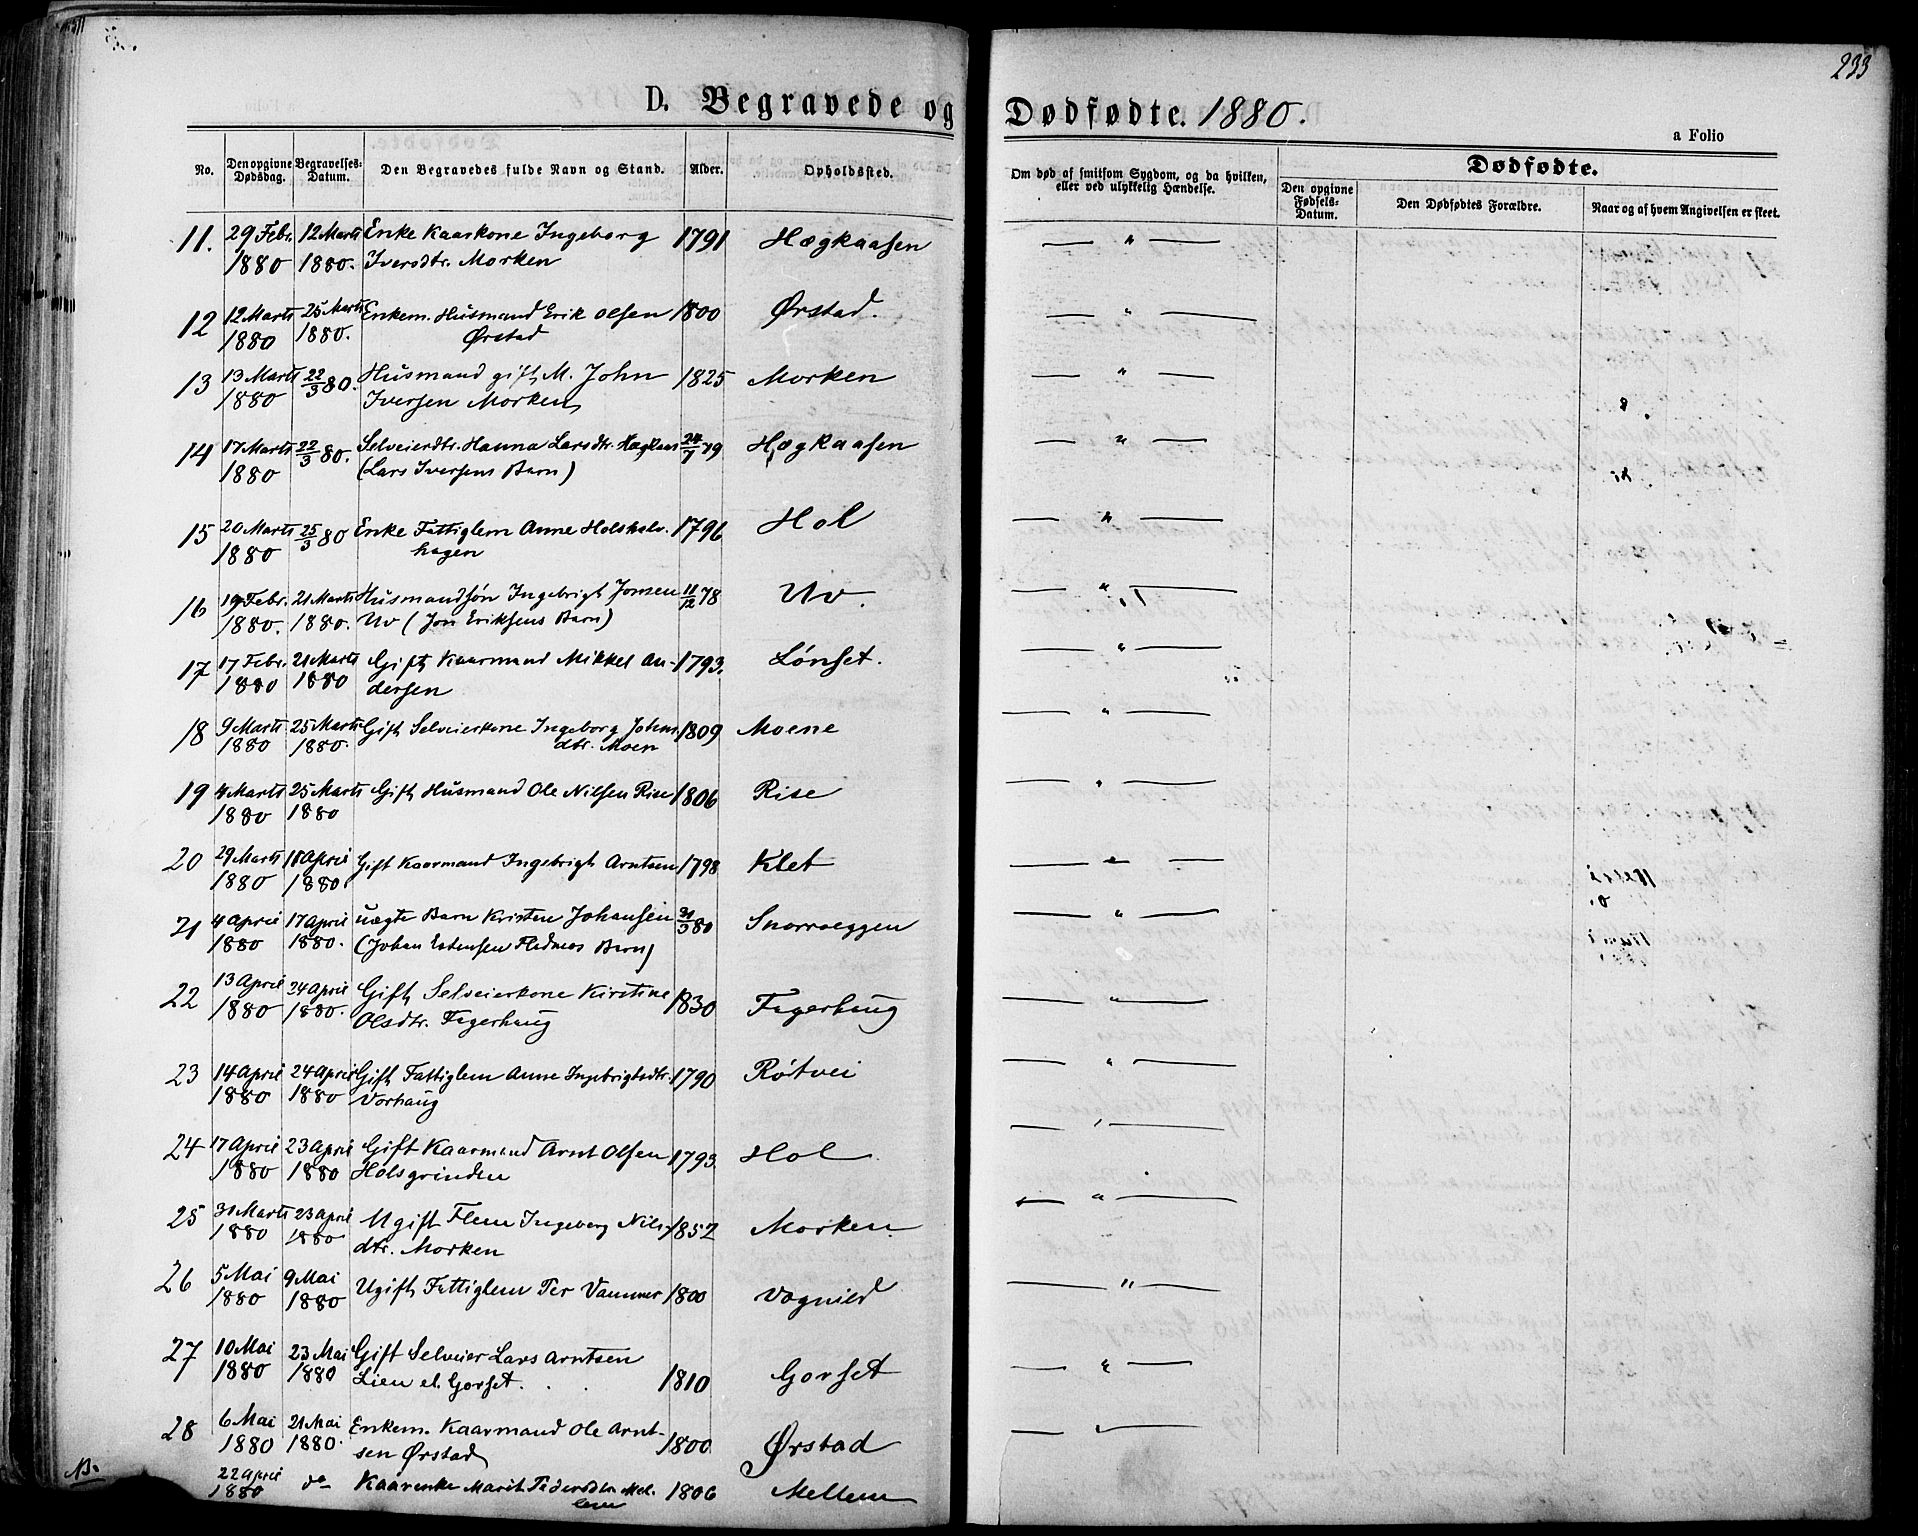 233
D. Begravede og Dødfødte. 1880.
a Folio
No. Den opgivne Dødsdag. Begravelses-Datum. Den Begravedes fulde Navn og Stand. Alder. Opholdssted. Om død af smitsom Sygdom, og da hvilken, eller ved ulykkelig Hændelse. Dødfødte.
Den opgivne Fødsels-Datum. Den Dødfødtes Forældre. Naar og af hvem Angivelsen er skeet.
11. 29 Febr. 12 Marts Enke Kaarkone Ingeborg 1791 Hægkaasen — " —
1880 1880. Iversdtr. Morken
12 12 Marts 25 Marts Enkem. Husmand Erik Olsen 1800 Ørstad. — " —
1880 1880. Ørstad
13 13 Marts 22/3 80. Husmand gift M. John 1825 Morken — " —
1880 Iversen Morken
14 17 Marts 22/3 80. Selveierdtr. Hanna Larsdtr. Hægkaas 24/7 79 Hægkaasen — " —
1880 (Lars Iversens Barn)
15 20 Marts 25/3 80 Enke Fattiglem Anne Holshalv- 1796 Hol — " —
1880 hagen
16 19 Febr. 21 Marts Husmandsøn Ingebrigt Jonsen 11/12 78 Uv. — " —
1880. 1880. Uv (Jon Eriksens Barn)
17 17 Febr. 21 Marts Gift Kaarmand Mikkel An- 1793. Lønset. — " —
1880 1880 dersen
18 9 Marts 25 Marts Gift Selveierkone Ingeborg Johns 1809 Moene — " —
1880 1880. dtr. Moen
19 4 Marts 25 Marts Gift Husmand Ole Nilsen Rise 1806 Rise — " —
1880 1880
20 29 Marts 18 April Gift Kaarmand Ingebrigt Arntsen 1798 Klet — " —
1880 1880.
21 4 April 17 April uægte Barn Kristen Johansen 31/3 80 Snorroeggen — " —
1880 1880. (Johan Estensen Fledmos Barn)
22 13 April 24 April Gift Selveierkone Kirstine 1830 Fagerhaug — " —
1880 1880. Olsdtr. Fagerhaug
23 14 April 24 April Gift Fattiglem Anne Ingebrigtsdtr. 1790 Røtvei — " —
1880 1880 Vorhaug
24 17 April 23 April Gift Kaarmand Arnt Olsen 1793 Hol — " —
1880 1880 Holsgrinden
25 31 Marts 23 April Ugift Flem Ingeborg Nils- 1852 Morken. — " —
1880 1880 dtr. Morken
26 5 Mai 9 Mai Ugift Fattiglem Per Vammer 1800 Vognild — " —
1880 1880
27 10 Mai 23 Mai Gift Selveier Lars Arntsen
1880 1880 Lien el. Gorset. 1810 Gorset — " —
28 6 Mai 21 Mai Enkem. Kaarmand Ole Arnt-
1880 1880. sen Ørstad 1800 Ørstad — " —
NB. 22 April do Kaarenke Marit Pedersdtr. Mel- 1806 Mellem
1880 lem